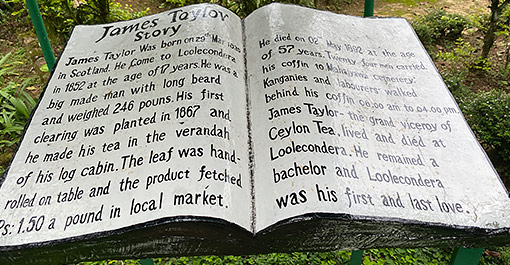 James Taylor
Story
James Taylor Was born on 29th Mar, 1835
in Scotland. He Come to Loolecondera
in 1852 at the age of 17 years. He was a
big made man with long beard
and weighed 246 pouns. His first
clearing was planted in 1867 and
he made his tea in the verandah
of his log cabin. The leaf was hand-
rolled on table and the product fetched
Ps: 1.50 a pound in local market.
He died on 02nd May 1892 at the age
of 57 years. Twenty four men carried
his coffin to Mahaiyawa cemetery.
Kanganies and labourers walked
behind his coffin 00.00 am to 04.00 pm.
James Taylor- the grand viceroy of
Ceylon Tea, lived and died at
Loolecondera. He remained a
bachelor and Loolecondera
was his first and last love.